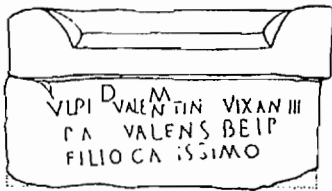 D M
VLPI VALENTIN VIXAN III
PA VALENS BEIP
FILIO CA ISSIMO